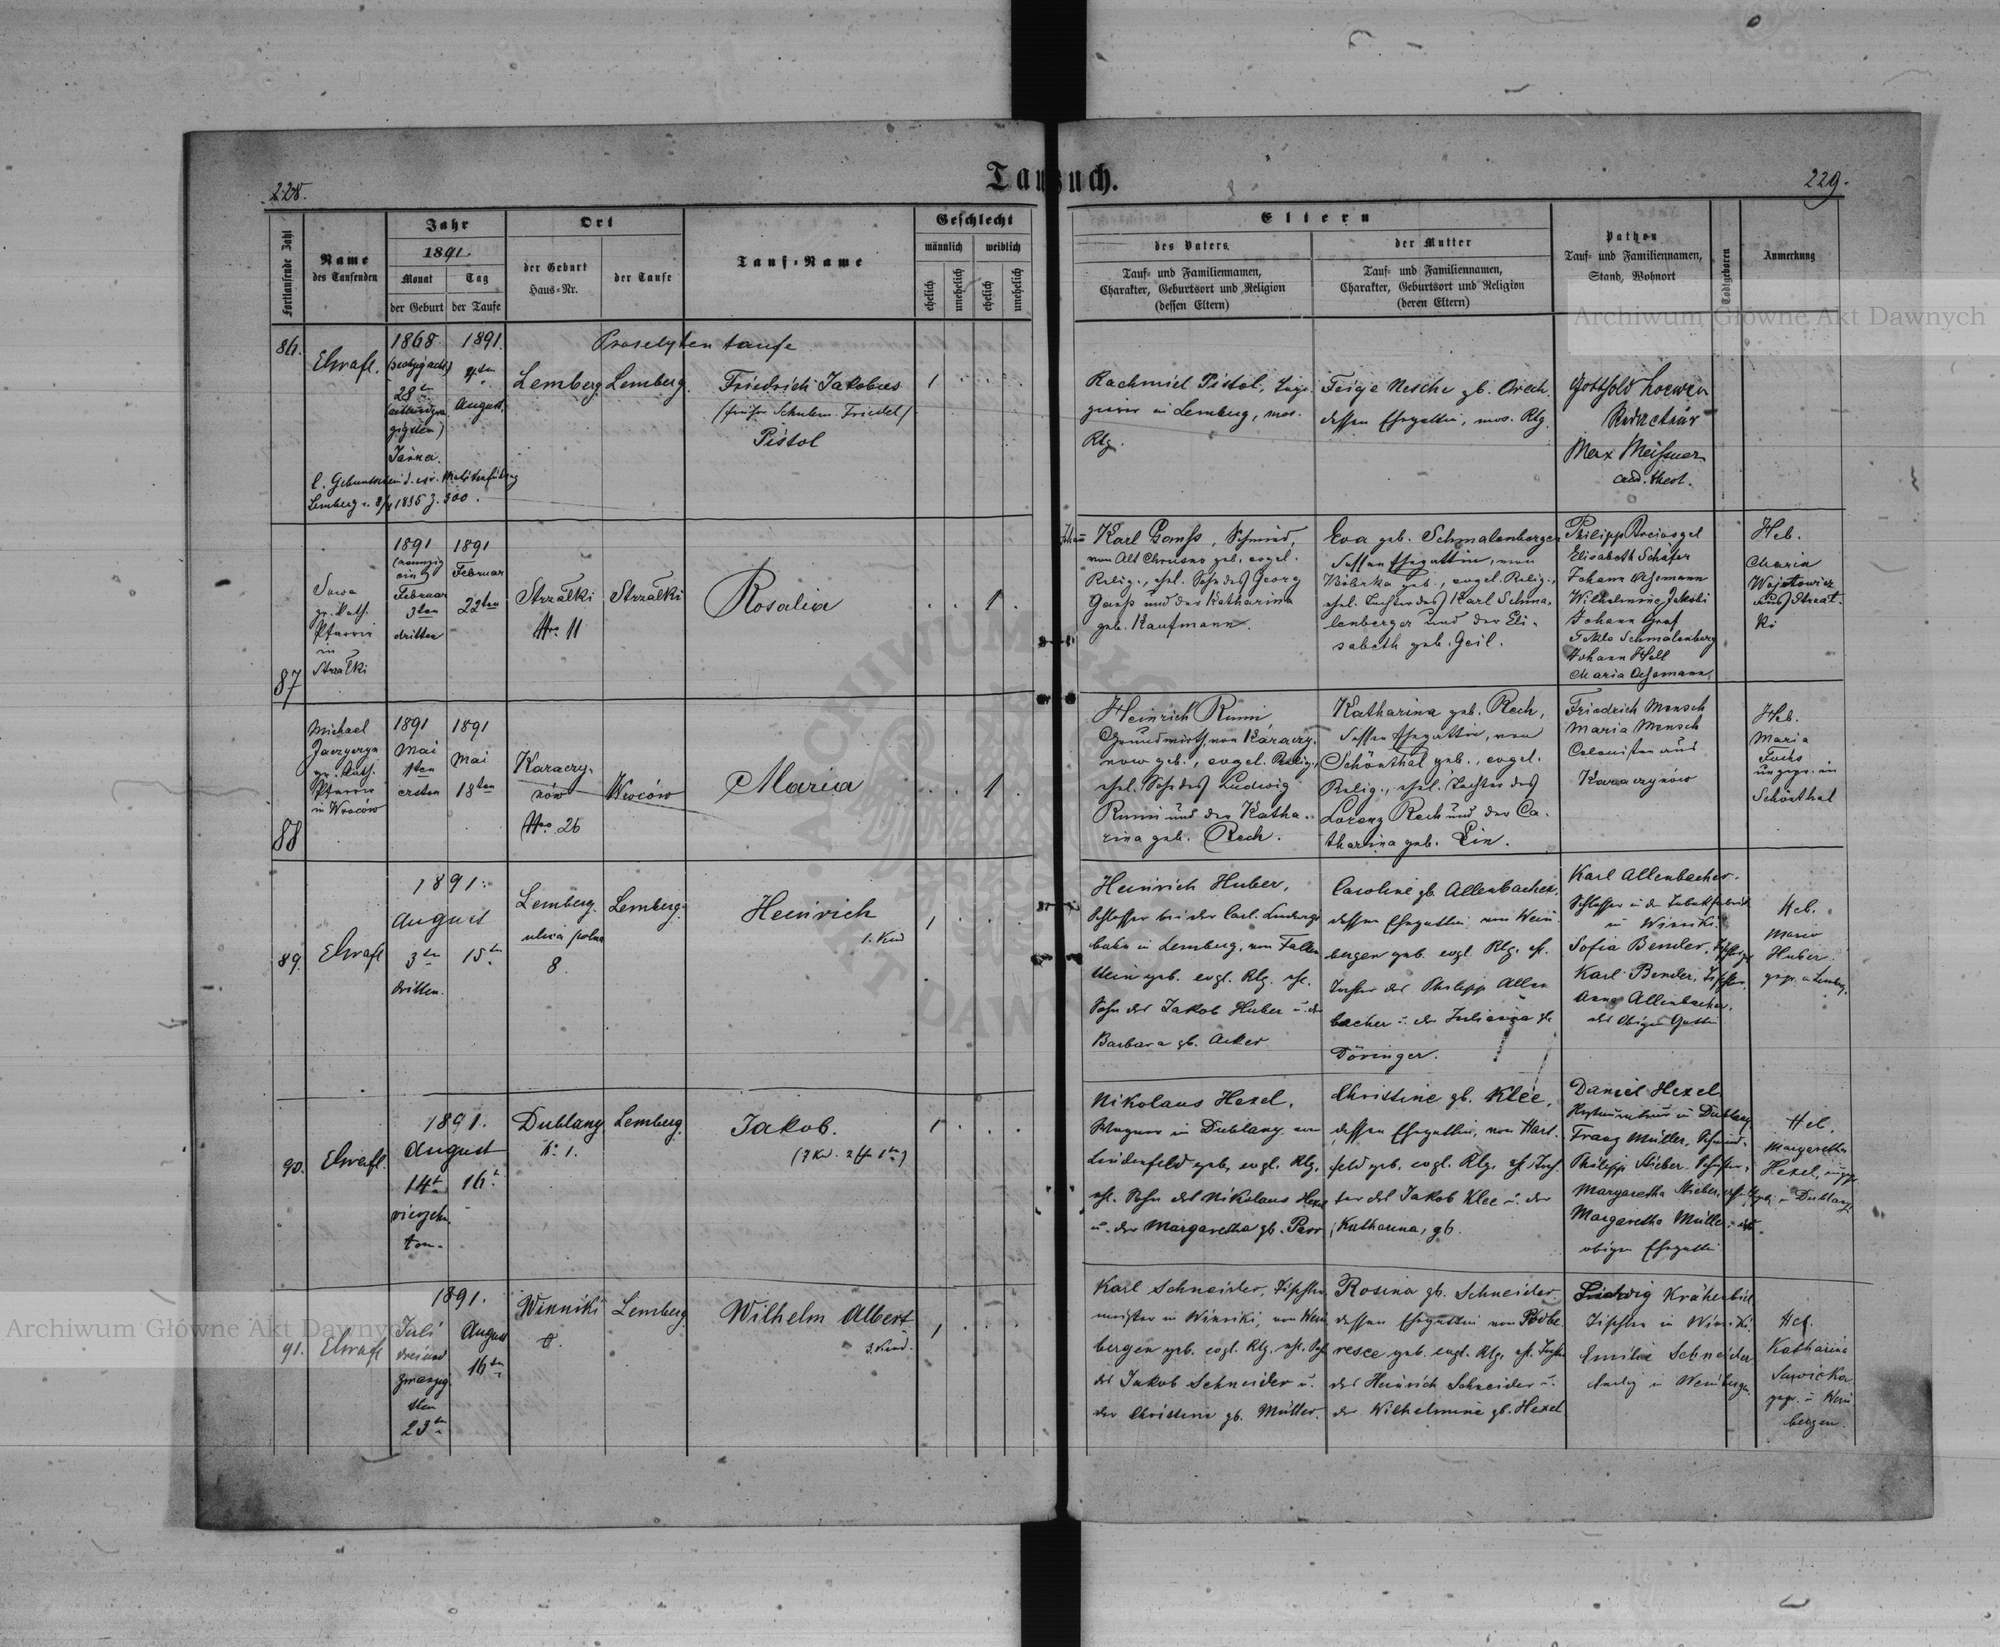 Taufbuch.
228.
229.
Fortlaufende Zahl
Name
des Taufenden
Jahr
1891.
Monat
der Geburt
Tag
der Taufe
Ort
der Geburt
Haus-Nr.
der Taufe
Tauf-Name
Geschlecht
männlich
weiblich
ehelich
unehelich
ehelich
unehelich
Eltern
des Vaters
Tauf- und Familiennamen,
Charakter, Geburtsort und Religion
(dessen Eltern)
der Mutter
Tauf- und Familiennamen,
Charakter, Geburtsort und Religion
(deren Eltern)
Pathen
Tauf- und Familiennamen,
Stand, Wohnort
Todtgeboren
Anmerkung
86.
1868
1891.
28ten
August
Jänner
Proselytentaufe
Lemberg.
Lemberg.
Friedrich Jakobus
Pistol
1
Rachmiel Pistol,
in Lemberg, mos.
Rlg.
Feige Nesche gb.
dessen Ehegattin, mos. Rlg.
Gotthold Loewen
Redacteur
Max Meißner
cand. theol.
87
gr. kath.
Pfarrer
in
Strzałki
1891
Februar
3ten
dritten
1891
Februar
22ten
Strzałki
Nro 11
Strzałki
Rosalia
1
Karl Ganß, Schmied,
von Alt Chrusno geb. evgel.
Relig., ehel. Sohn des Georg
Ganß und der Katharina
geb. Kaufmann.
Eva geb. Schmalenberger
dessen Ehegattin, von
Bóbrka geb., evgel. Relig.,
ehel. Tochter des Karl Schma-
lenberger und der Eli-
sabeth geb. Geil.
Philipp
Elisabeth Schäfer
Johann
Wilhelmine Jakobi
Johann Graf
Tekla Schmalenberg
Johann
Maria
Heb.
Maria
Wojtowicz
aus Strzał-
ki
88
Michael
gr. kath.
Pfarrer
in Wroców
1891
Mai
1ten
ersten
1891
Mai
18ten
Karaczy-
nów
Nro 26
Wroców
Maria
1
Heinrich Rumi,
Grundwirth, von Karaczy-
now geb., evgel. Relig.,
ehel. Sohn des Ludwig
Rumi und der Katha-
rina geb. Rech.
Katharina geb. Rech,
dessen Ehegattin, von
Schönthal geb., evgel.
Relig., ehel. Tochter des
Lorenz Rech und der Ca-
tharina geb.
Friedrich Mensch
Maria Mensch
Colonisten aus
Karaczynów
Heb.
Maria
Fuchs
ungepr. in
Schönthal
89.
1891.
August
3ten
dritten.
15ten
Lemberg.
ulica polna
8.
Lemberg.
Heinrich
1. Kind
1
Heinrich Huber,
Schlosser bei der Carl. Ludwigs
bahn in Lemberg, von Falken
stein geb. evgl. Rlg. ehl.
Sohn des Jakob Huber u. der
Barbara gb. Acker
Caroline gb. Allenbacher,
dessen Ehegattin von Wein
bergen geb. evgl. Rlg. ehl.
Tochter des Philipp Allen
bacher u. der Juliana gb.
Döringer.
Karl Allenbacher.
Schlosser in der Tabakfabrik
in Winniki.
Sofia Bender,
Karl Bender, Tischler,
Anna Allenbacher,
des Obigen Gattin
Heb.
Maria
Huber.
gepr. in Lemberg.
90.
1891.
August
14ten
vierzehn
ten.
16.
Dublany.
N. 1.
Lemberg.
Jakob.
1
Nikolaus Hexel,
Wagner in Dublany von
Lindenfeld geb. evgl. Rlg.
ehl. Sohn des Nikolaus Hexel
u. der Margaretha gb.
Christine gb. Klee,
dessen Ehegattin, von Hart-
feld geb. evgl. Rlg. ehl. Toch-
ter des Jakob Klee u. der
Katharina, gb.
Daniel Hexel
in Dublany
Franz Müller, Schmied.
Philipp Stieber
Margaretha Stieber,
Margaretha Müller
obigen Ehegattin
Heb.
Margaretha
Hexel, ungepr.
in Dublany
91.
1891.
Juli
dreiund
zwanzig
sten
23ten
August
16ten
Winniki
Lemberg.
Wilhelm Albert
3. Kind.
1
Karl Schneider, Tischler
meister in Winniki, von Wein
bergen geb. evgl. Rlg. ehl. Sohn
des Jakob Schneider u.
der Christine gb. Müller.
Rosina gb. Schneider.
dessen Ehegattin von Podbe
resce geb. evgl. Rlg. ehl. Tochter
des Heinrich Schneider u.
der Wilhelmine gb. Hexel
Ludwig Krähenbiel,
Tischler in Winniki.
Emilie Schneider
ledig in Weinbergen.
Heb.
Katharina
Sawicka
gepr. in Wein
bergen.
Archiwum Główne Akt Dawnych
Archiwum Główne Akt Dawnych